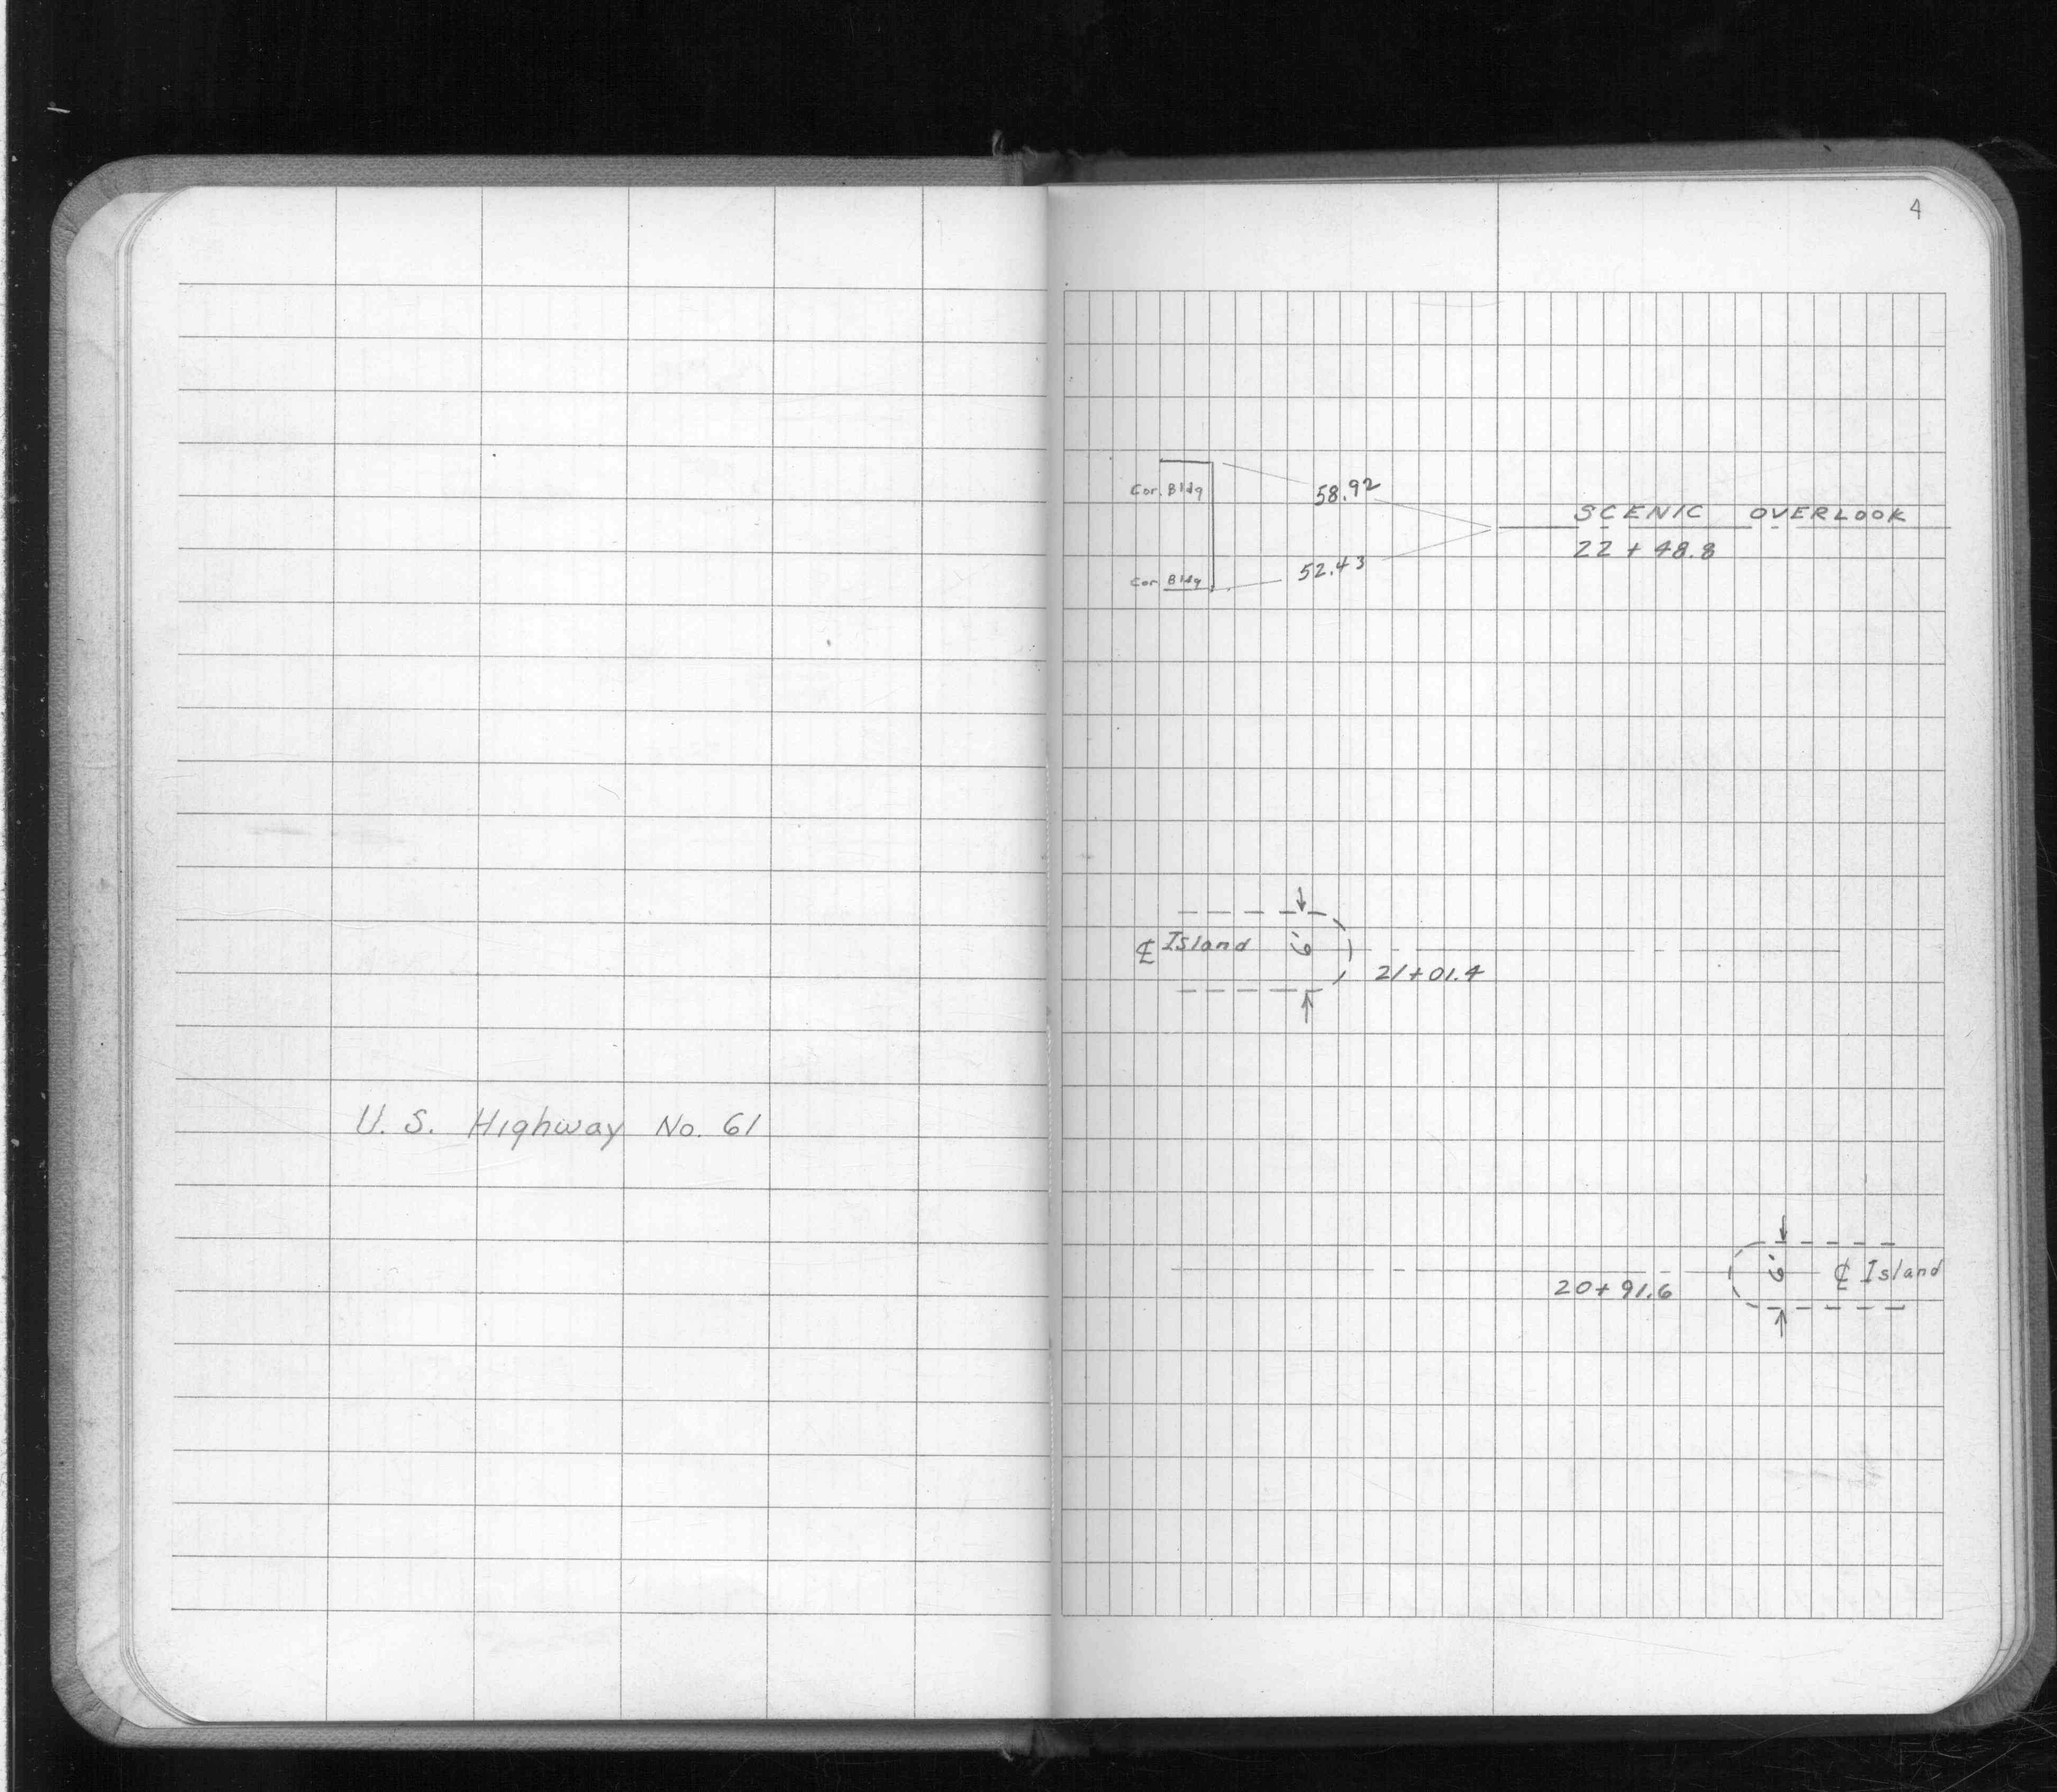 U. S. Highway No. 61
4
Cor. Bldg
58.92
SCENIC OVERLOOK
22 + 48.8
52.43
Cor Bldg
℄ Island
21+01.4
20+91.6
℄ Island